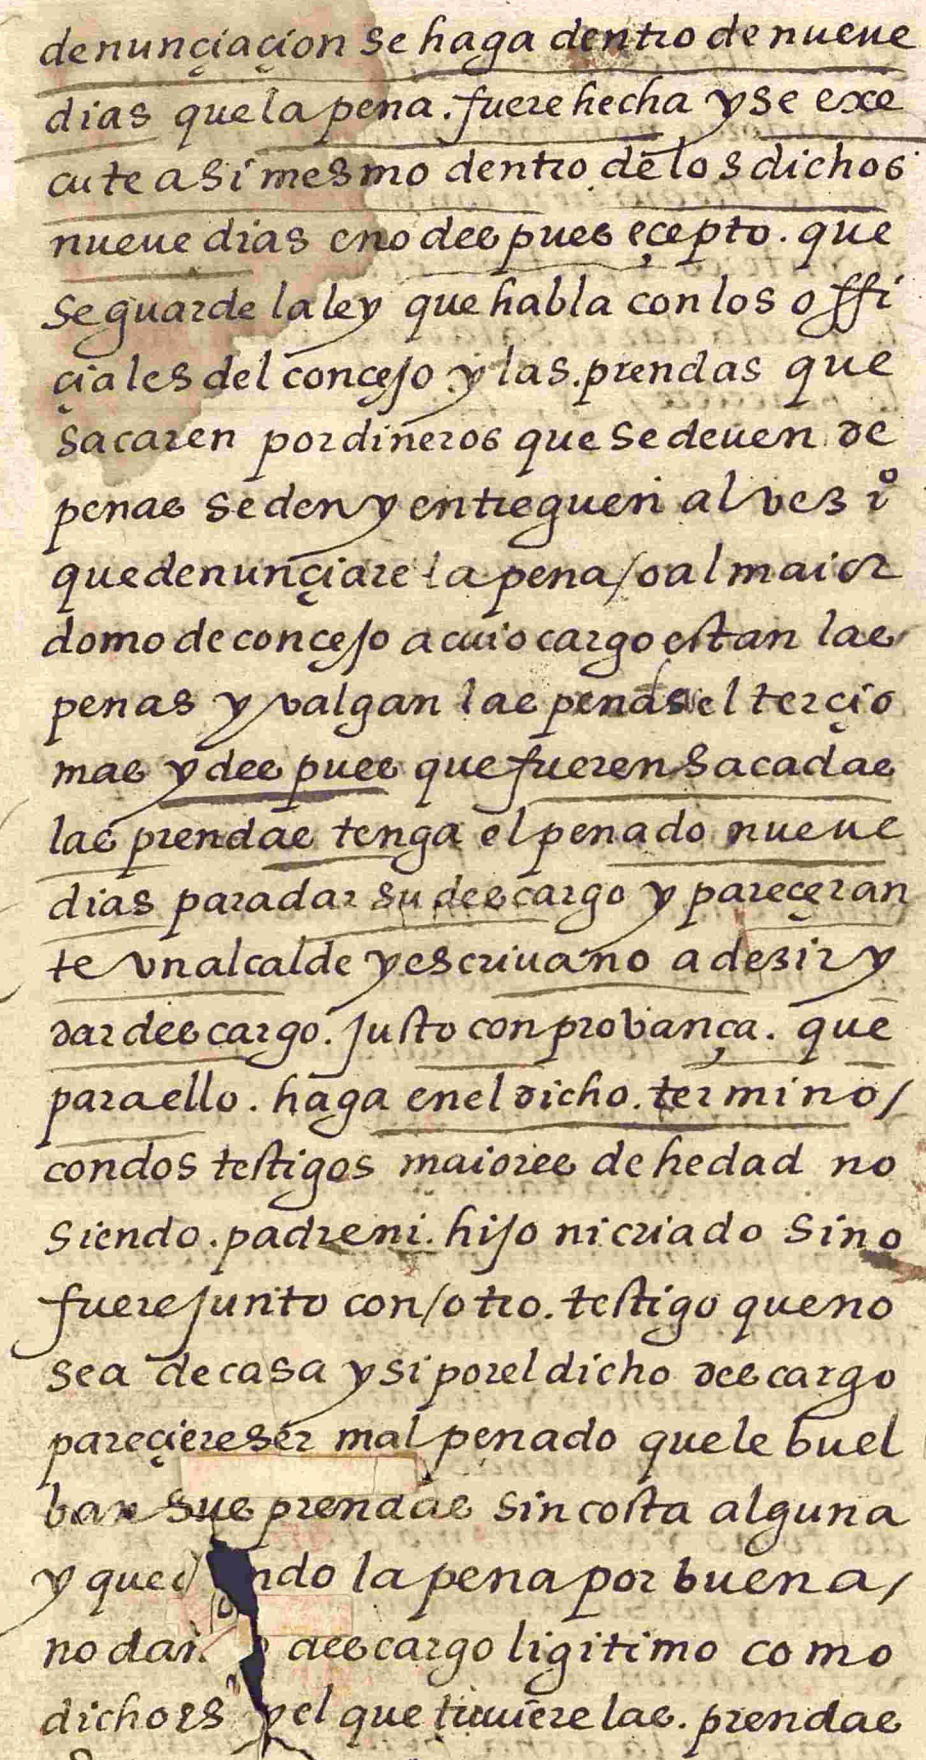 denunçiaçion se haga dentro de nueue
dias que la pena. fuere hecha y se exe
cute asi mesmo dentro de los dichos
nueue dias e no despues eçepto. que
se guarde la ley que habla con los offi
çiales del concejo y las. prendas que
sacaren por dineros que se deuen de
penas se den y entreguen al vezi°
que denunçiare la pena / o al maior
domo de concejo a cuio cargo estan las
penas y valgan las penas el terçio
mas y despues que fueren sacadas
las prendas tenga el penado nueue
dias para dar su descargo y pareçer an
te vn alcalde y escriuano a dezir y
dar descargo. justo con provança. que
para ello. haga en el dicho. termino /
con dos testigos maiores de hedad no
siendo. padre ni. hijo ni criado sino
fuere junto con / otro. testigo que no
sea de casa y si por el dicho descargo
pareçiere ser mal penado que le buel
ban sus prendas sin costa alguna
y la pena por buena /
no descargo ligitimo como
dicho es y el que tuuiere las. prendas